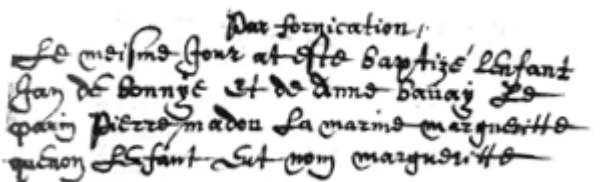 Par fornication,
Le meisme Jour at este baptizé Lenfant
Jan de bonnÿe Et de Anne bavaÿ Le
parin Pierre madou La marine margueritte
quenon Lenfant Eut nom margueritte